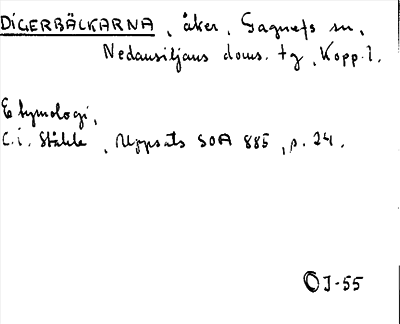 DIGERBÄCKARNA, åker, Gagnefs sn,
Nedansiljans doms. tg, Kopp. l.
Etymologi,
C.I. Ståhle, Uppsats SOA 885, p. 24.
OJ-55